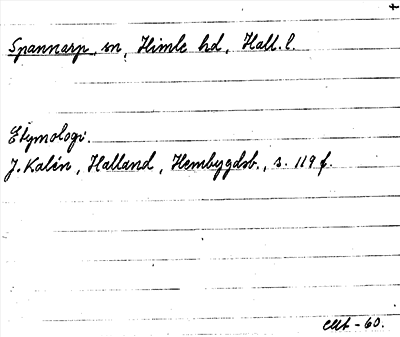 Spannarp, sn, Himle hd, Hall. l.
Etymologi.
J. Kalén, Halland, Hembygdsb., s. 119 f.
-60.